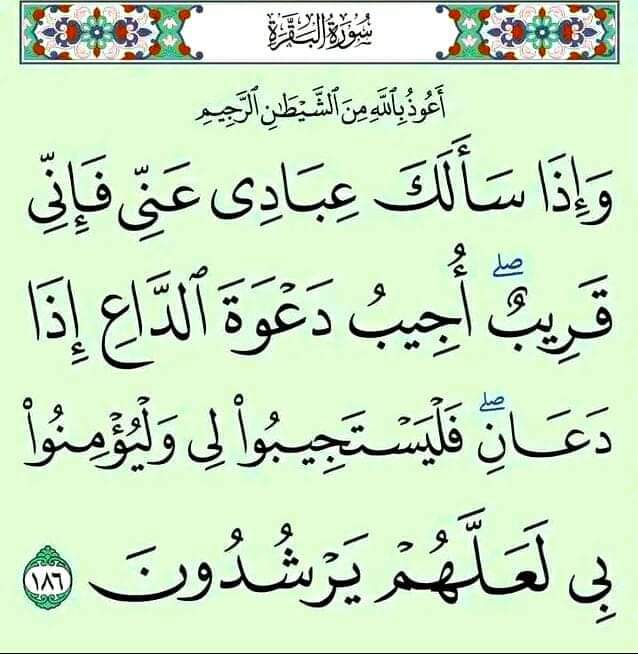 سُورَةُ البَقَرَةِ
أَعُوذُ بِٱللَّهِ مِنَ ٱلشَّيْطَٰنِ ٱلرَّجِيمِ
وَإِذَا سَأَلَكَ عِبَادِى عَنِّى فَإِنِّى
قَرِيبٌ ۖ أُجِيبُ دَعْوَةَ ٱلدَّاعِ إِذَا
دَعَانِ ۖ فَلْيَسْتَجِيبُوا۟ لِى وَلْيُؤْمِنُوا۟
بِى لَعَلَّهُمْ يَرْشُدُونَ ١٨٦